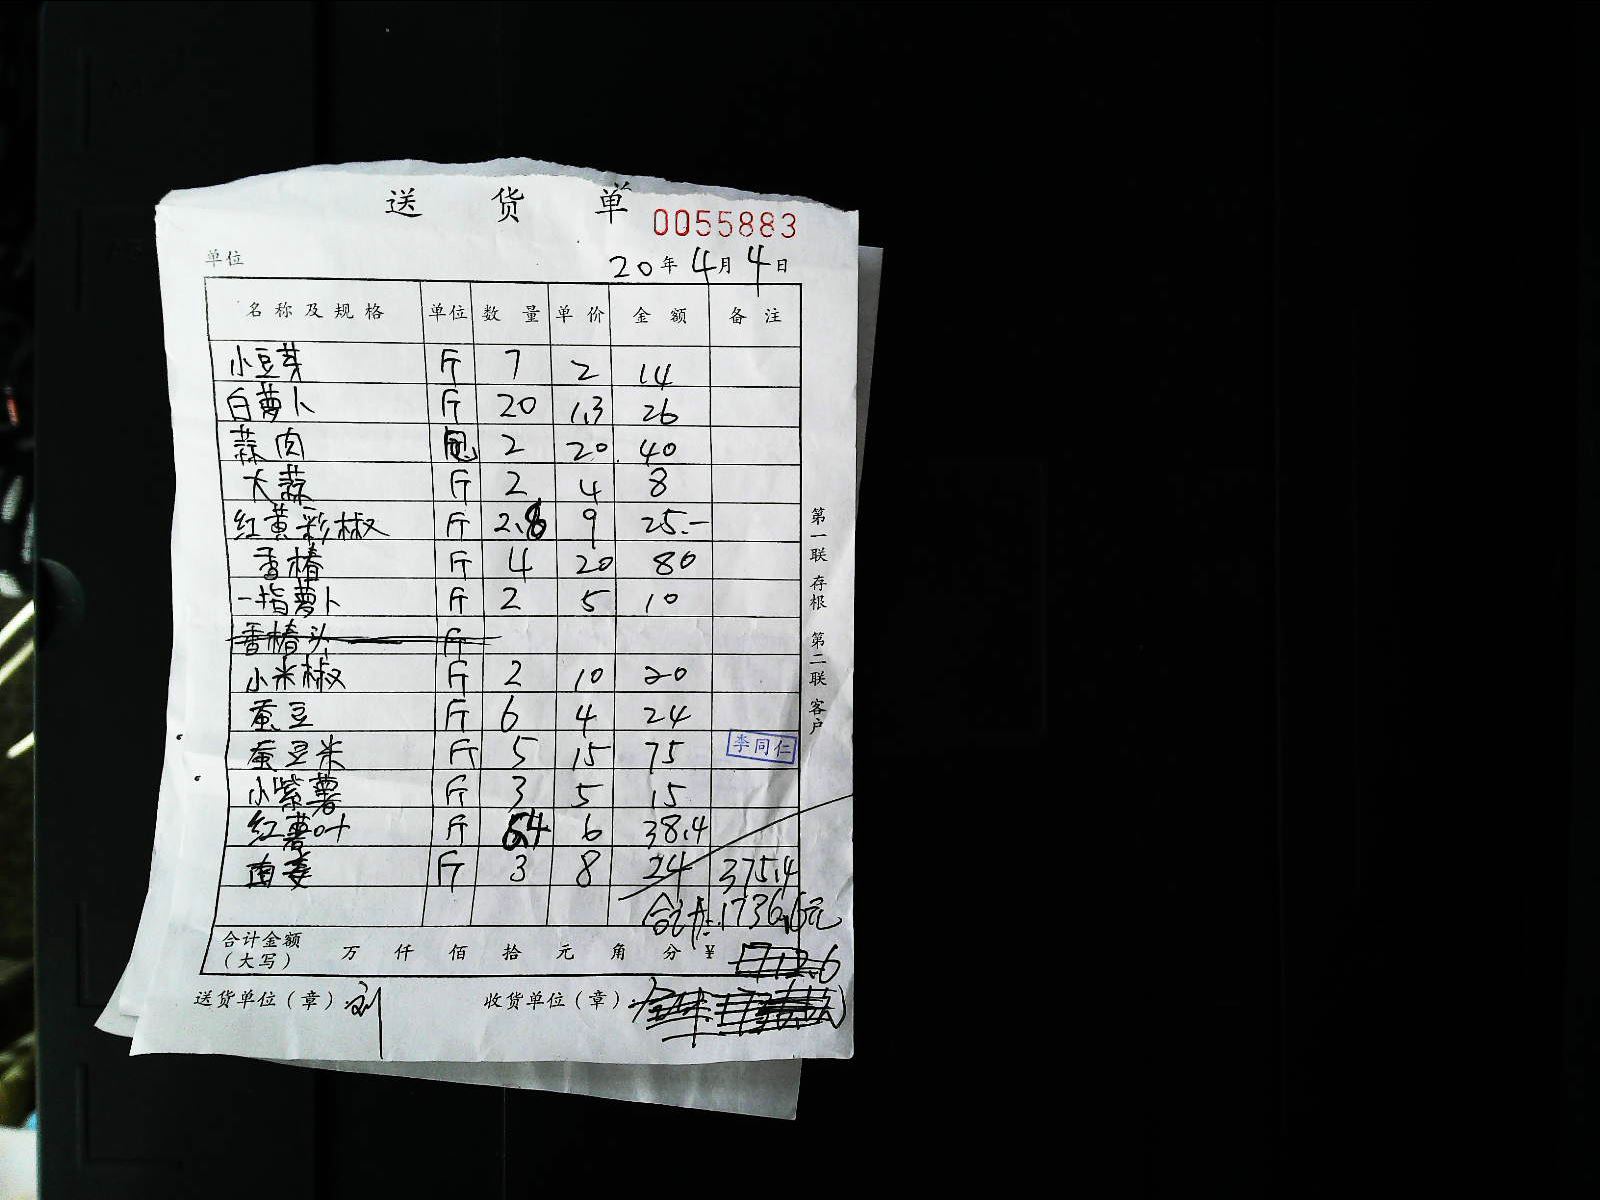 送货单
0055883
单位 20年4月4日
名称及规格 单位 数量 单价 金额 备注
小豆芽 斤 7 2 14
白萝卜 斤 20 1.3 26
蒜肉 2 20 40
大蒜 斤 2 4 8
红黄彩椒 斤 2.8 9 25.-
香椿 斤 4 20 80
一指萝卜 斤 2 5 10
香椿头 斤
小米椒 斤 2 10 20
蚕豆 斤 6 4 24
蚕豆米 斤 5 15 75
李同仁
小紫薯 斤 3 5 15
红薯叶 斤 6.4 6 38.4
斤 3 8 24 375.4
合计:1736.6元
合计金额
(大写) 万仟佰拾元角分¥ 1712.6
送货单位(章) 刘 收货单位(章)
第一联 存根 第二联 客户